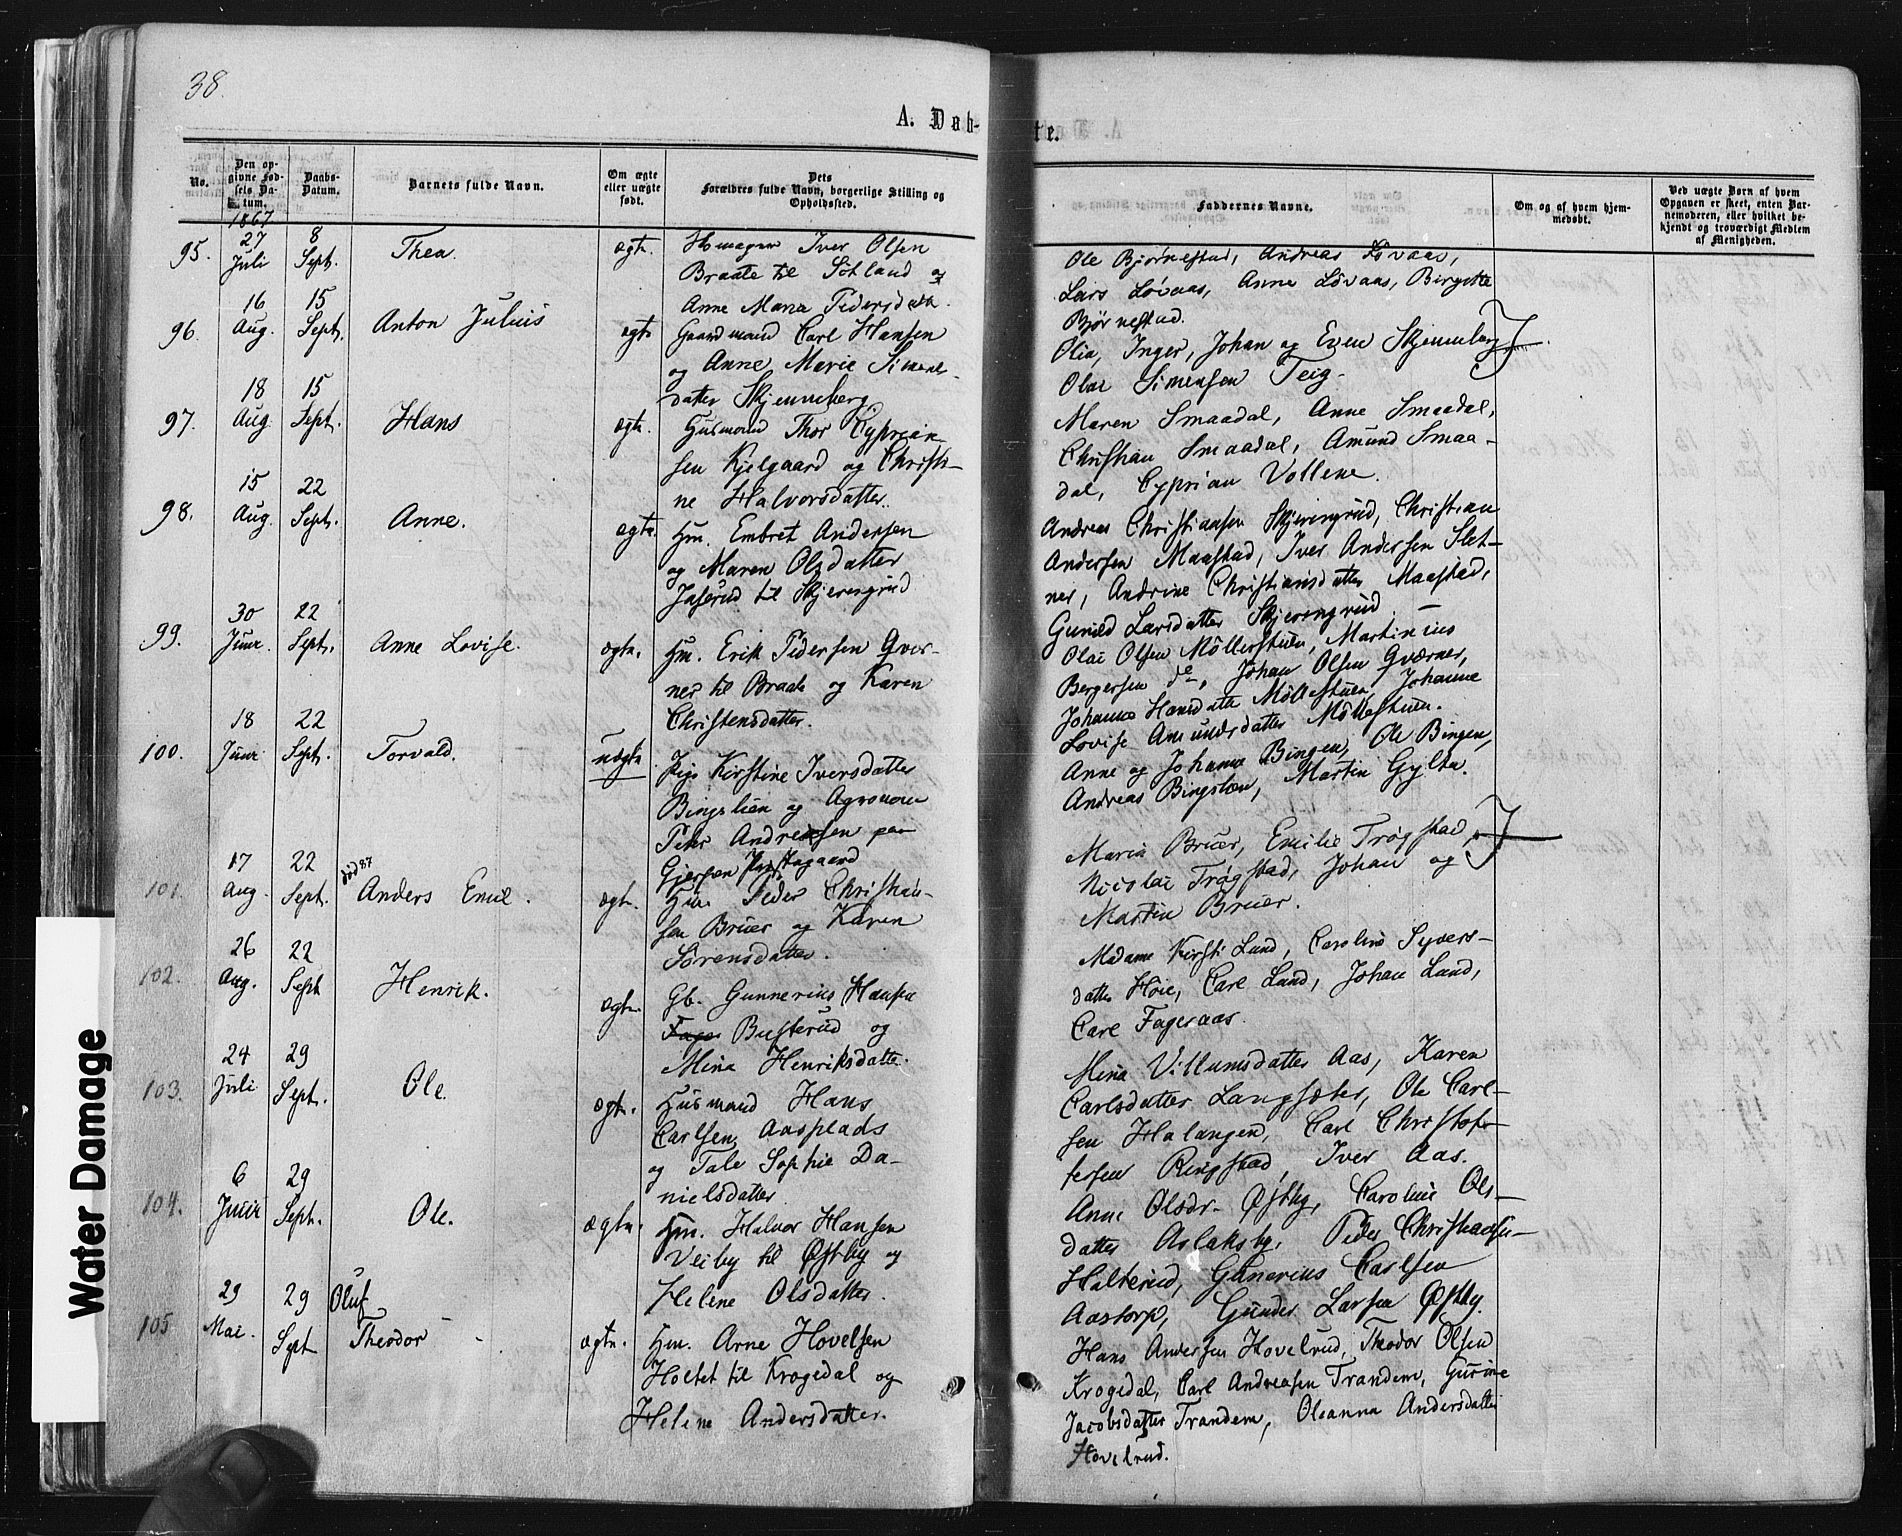 38.
A. Døb-
te.
No.
Den op-
givne Fød-
sels Da-
tum.
Daabs-
Datum.
Barnets fulde Navn.
Om ægte
eller uægte
født.
Dets
Forældres fulde Navn, borgerlige Stilling og
Opholdssted.
Faddernes Navne.
Om og af hvem hjem-
medøbt.
Ved uægte Børn af hvem
Opgaven er skeet, enten Bar-
nemoderen, eller hvilket be-
kjendt og troværdigt Medlem
af Menigheden.
1867
95.
27 Juli
8 Sept.
Thea.
ægte.
Iver Olsen
Braate til Sotland og
Anne Maria Pedersdatte.
Ole Bjørnestad, Andreas Løvaas,
Lars Løvaas, Anne Løvaas, Birgitte
Bjørnestad.
96.
16 Aug.
15 Sept.
Anton Julius
ægte
Gaardmand Carl Hansen
og Anne Marie Simens-
datter Skjenneberg
Olia, Inger, Johan og Even Skjenneberg
Olai Simensen Teig.
97.
18 Aug
15 Sept.
Hans
ægte.
Husmand Thor Cyprian-
sen Kjelgaard og Christi-
ne Halvorsdatter.
Maren Smaadal, Anne Smaadal,
Christian Smaadal, Amund Smaa-
dal, Cyprian Vollene.
98.
15 Aug.
22 Sept.
Anne.
ægte.
Hm. Embret Andersen
og Maren Olsdatter
Jaserud til Skjerengrud
Andreas Christiansen Skjerengrud, Christian
Andersen Maastad, Iver Andersen Slet-
ner, Andrine Christiansdatter Maastad,
Gunild Larsdatter Skjerengrud.
99.
30 Juni.
22 Sept.
Anne Lovise.
ægte.
Hm. Erik Pedersen Gver-
ner til Braate og Karen
Christensdatter.
Olai Olsen Møllerstuen, Martinius
Bergersen do, Johan Olsen Gværner,
Johanne Hansdatte Møllestuen, Johanne
Lovise Amundsdatter Møllestuen.
100.
18 Juni
22 Sept.
Torvald.
uægte
Pige Kirstine Iversdatter
Bingslien og Agronom
Peter Andresen paa
Gjersøen Præstegaard
Anne og Johanne Bingen, Ole Bingen,
Andreas Bingslien, Martin Gylta.
101.
17 Aug.
22 Sept.
død 87
Anders Emil.
ægte.
Hm. Peder Christian-
sen Bruer og Karen
Sørensdatter.
Maria Bruer, Emilie Trøgstad,
Nicolai Trøgstad, Johan og
Martin Bruer.
102.
26 Aug.
22 Sept
Henrik.
ægte.
Gb. Gunnerius Hansen
Busterud og
Mina Henriksdatte.
Madame Kirsti Lund, Caroline Syvers-
datter Høie, Carl Lund, Johan Lund,
Carl Fageraas.
103.
24 Juli
29 Sept.
Ole.
ægte.
Husmand Hans
Carlsen Aasplads
og Tale Sophie Da-
nielsdatter
Mina Villumsdatter Aas, Karen
Carlsdatter Langsæter, Ole Carl-
sen Halangen, Carl Christof-
fersen Ringstad, Iver Aas.
104.
6 Juni
29 Sept.
Ole.
ægte.
Hm. Halvor Hansen
Veiby til Østby og
Helene Olsdatter.
Anne Olsdr. Østby, Caroline Ols-
datter Aslaksby, Peder Christiansen
Halterud, Gunerius Carlsen
Aastorp, Gunder Larsen Østby.
105
29 Mai.
29 Sept
Oluf
Theodor
ægte.
Hm. Arne Hovelsen
Holtet til Krogedal og
Helene Andersdatter.
Hans Andersen Hovelrud, Theodor Olsen
Krogedal, Carl Andreasen Trandem, Gurine
Jacobsdatter Trandem, Oleanna Andersdatter
Hovelrud.
Water Damage